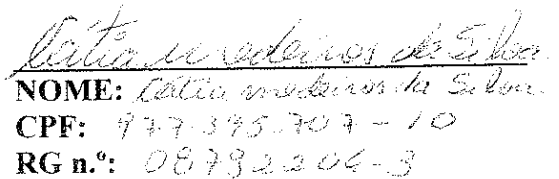 Cátia medeiros da Silva
NOME: Cátia medeiros da Silva
CPF: 977.395.707-10
RG n.º: 08792204-3